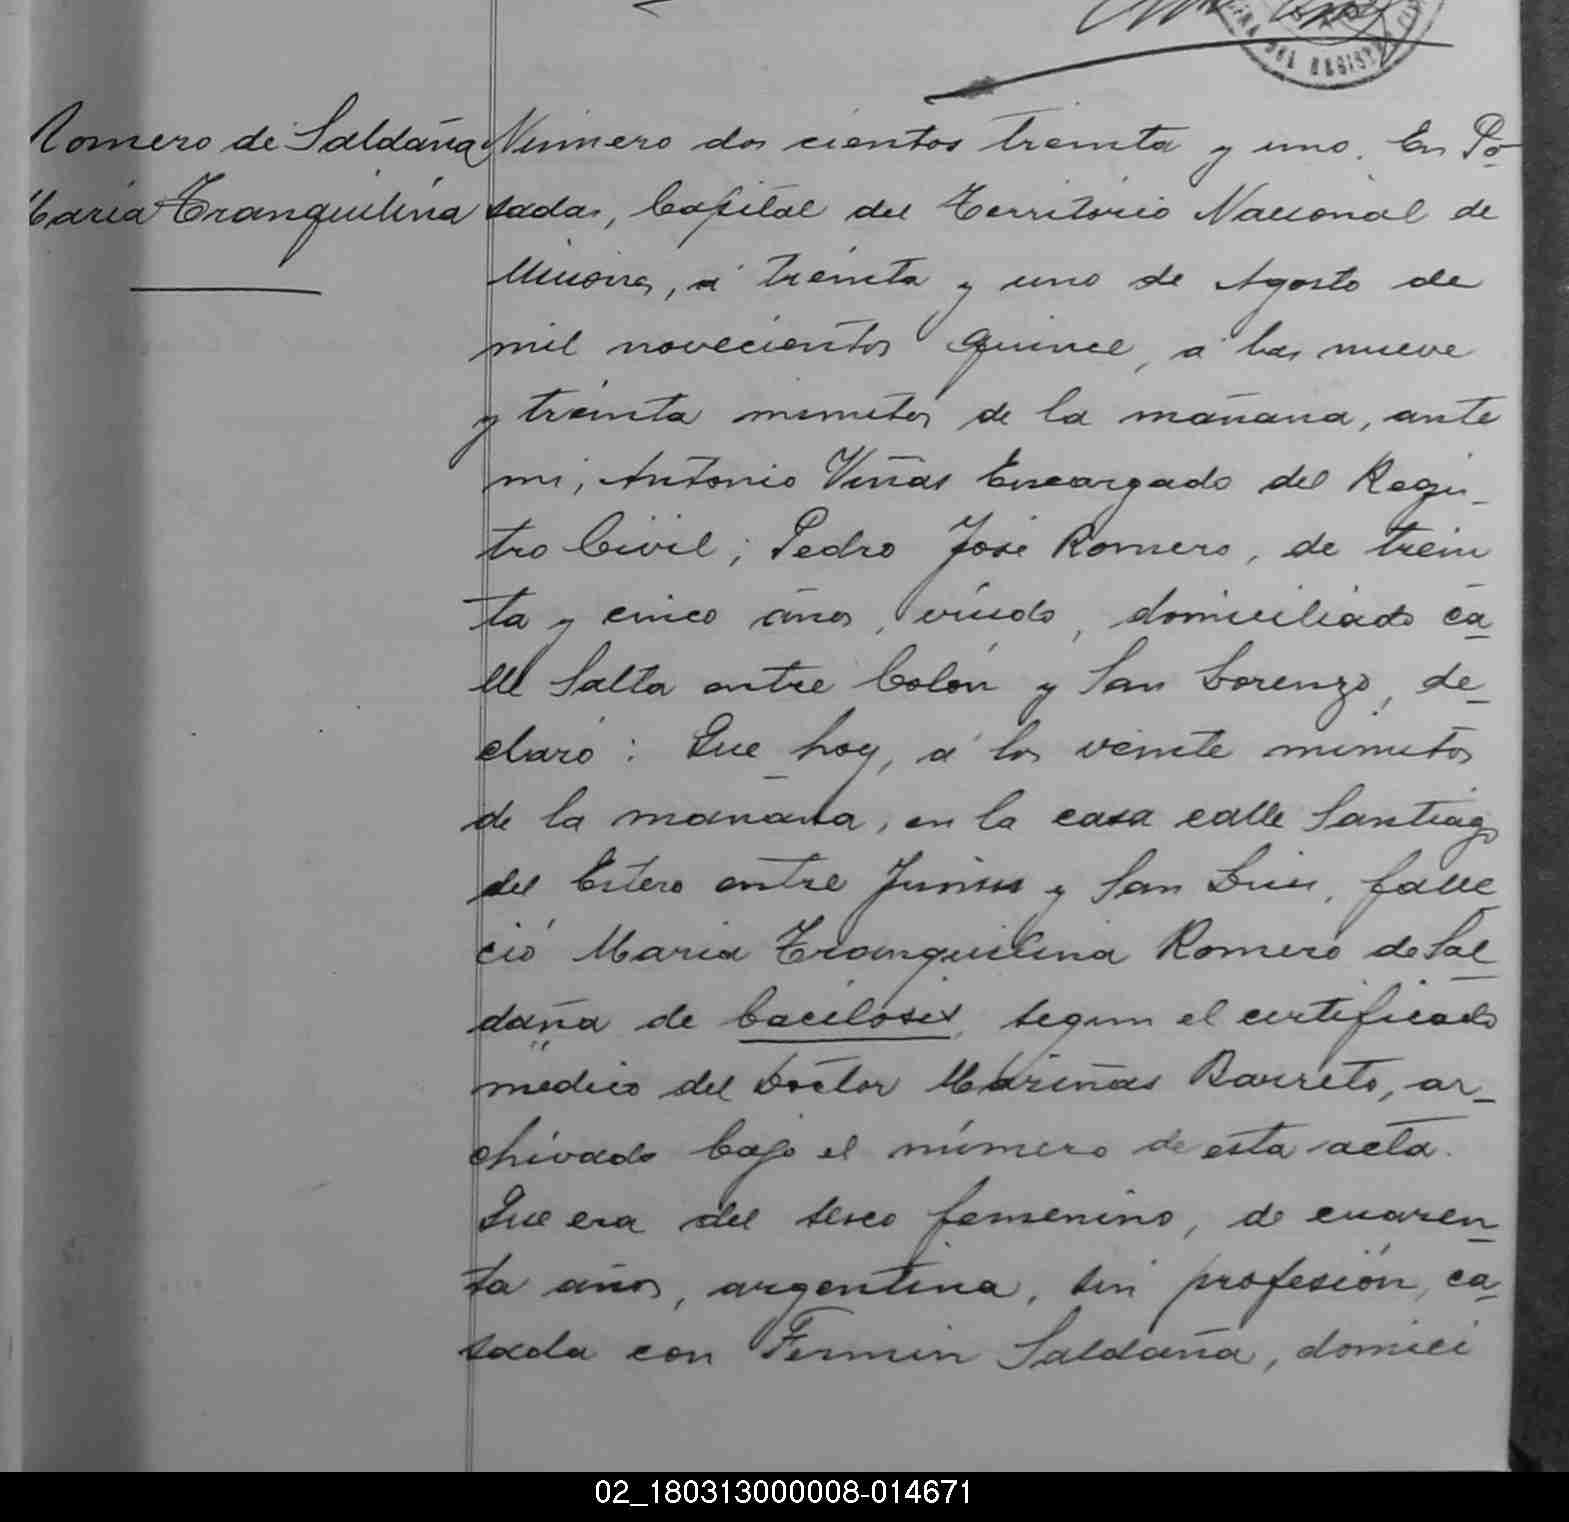 Romero de Saldaña
Maria Tranquilina
Número dos cientos treinta y uno. En Po-
sadas, Capital del Territorio Nacional de
Misiones, á treinta y uno de Agosto de
mil novecientos quince, á las nueve
y treinta minutos de la mañana, ante
mi, Antonio Viñas Encargado del Regis-
tro Civil; Pedro José Romero, de trein
ta y cinco años, viudo, domiciliado ca-
lle Salta entre Colón y San Lorenzo, de-
claró: Que hoy, á los veinte minutos
de la mañana, en la casa calle Santiago
del Estero entre Junin y San Luis, falle-
ció Maria Tranquilina Romero de Sal-
daña de bacilosis, segun el certificado
médico del Doctor Mariñas Barreto, ar-
chivado bajo el número de esta acta.
Que era del sexo femenino, de cuaren-
ta años, argentina, sin profesión, ca-
sada con Fermin Saldaña, domici
02_180313000008-014671